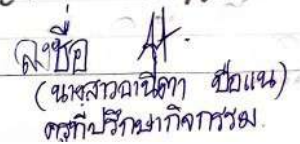 ลงชื่อ
(นางสาวอานีตา ปือแน)
ครูที่ปรึกษากิจกรรม.